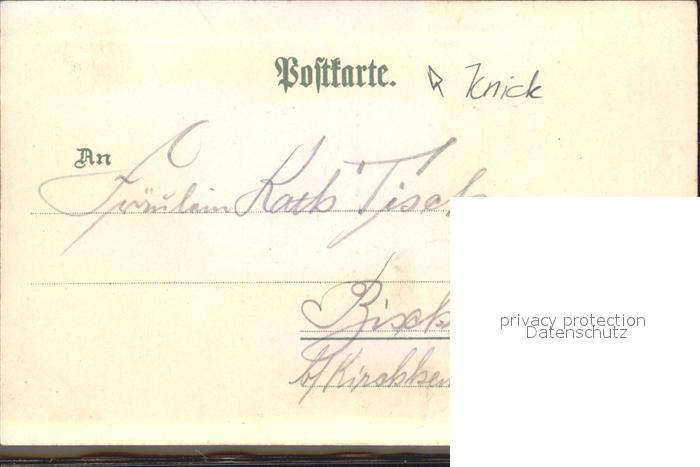 Postkarte. Knick
An
Fräulein Kath Tisch
Bisch
b/ Kirchhen
privacy protection
Datenschutz